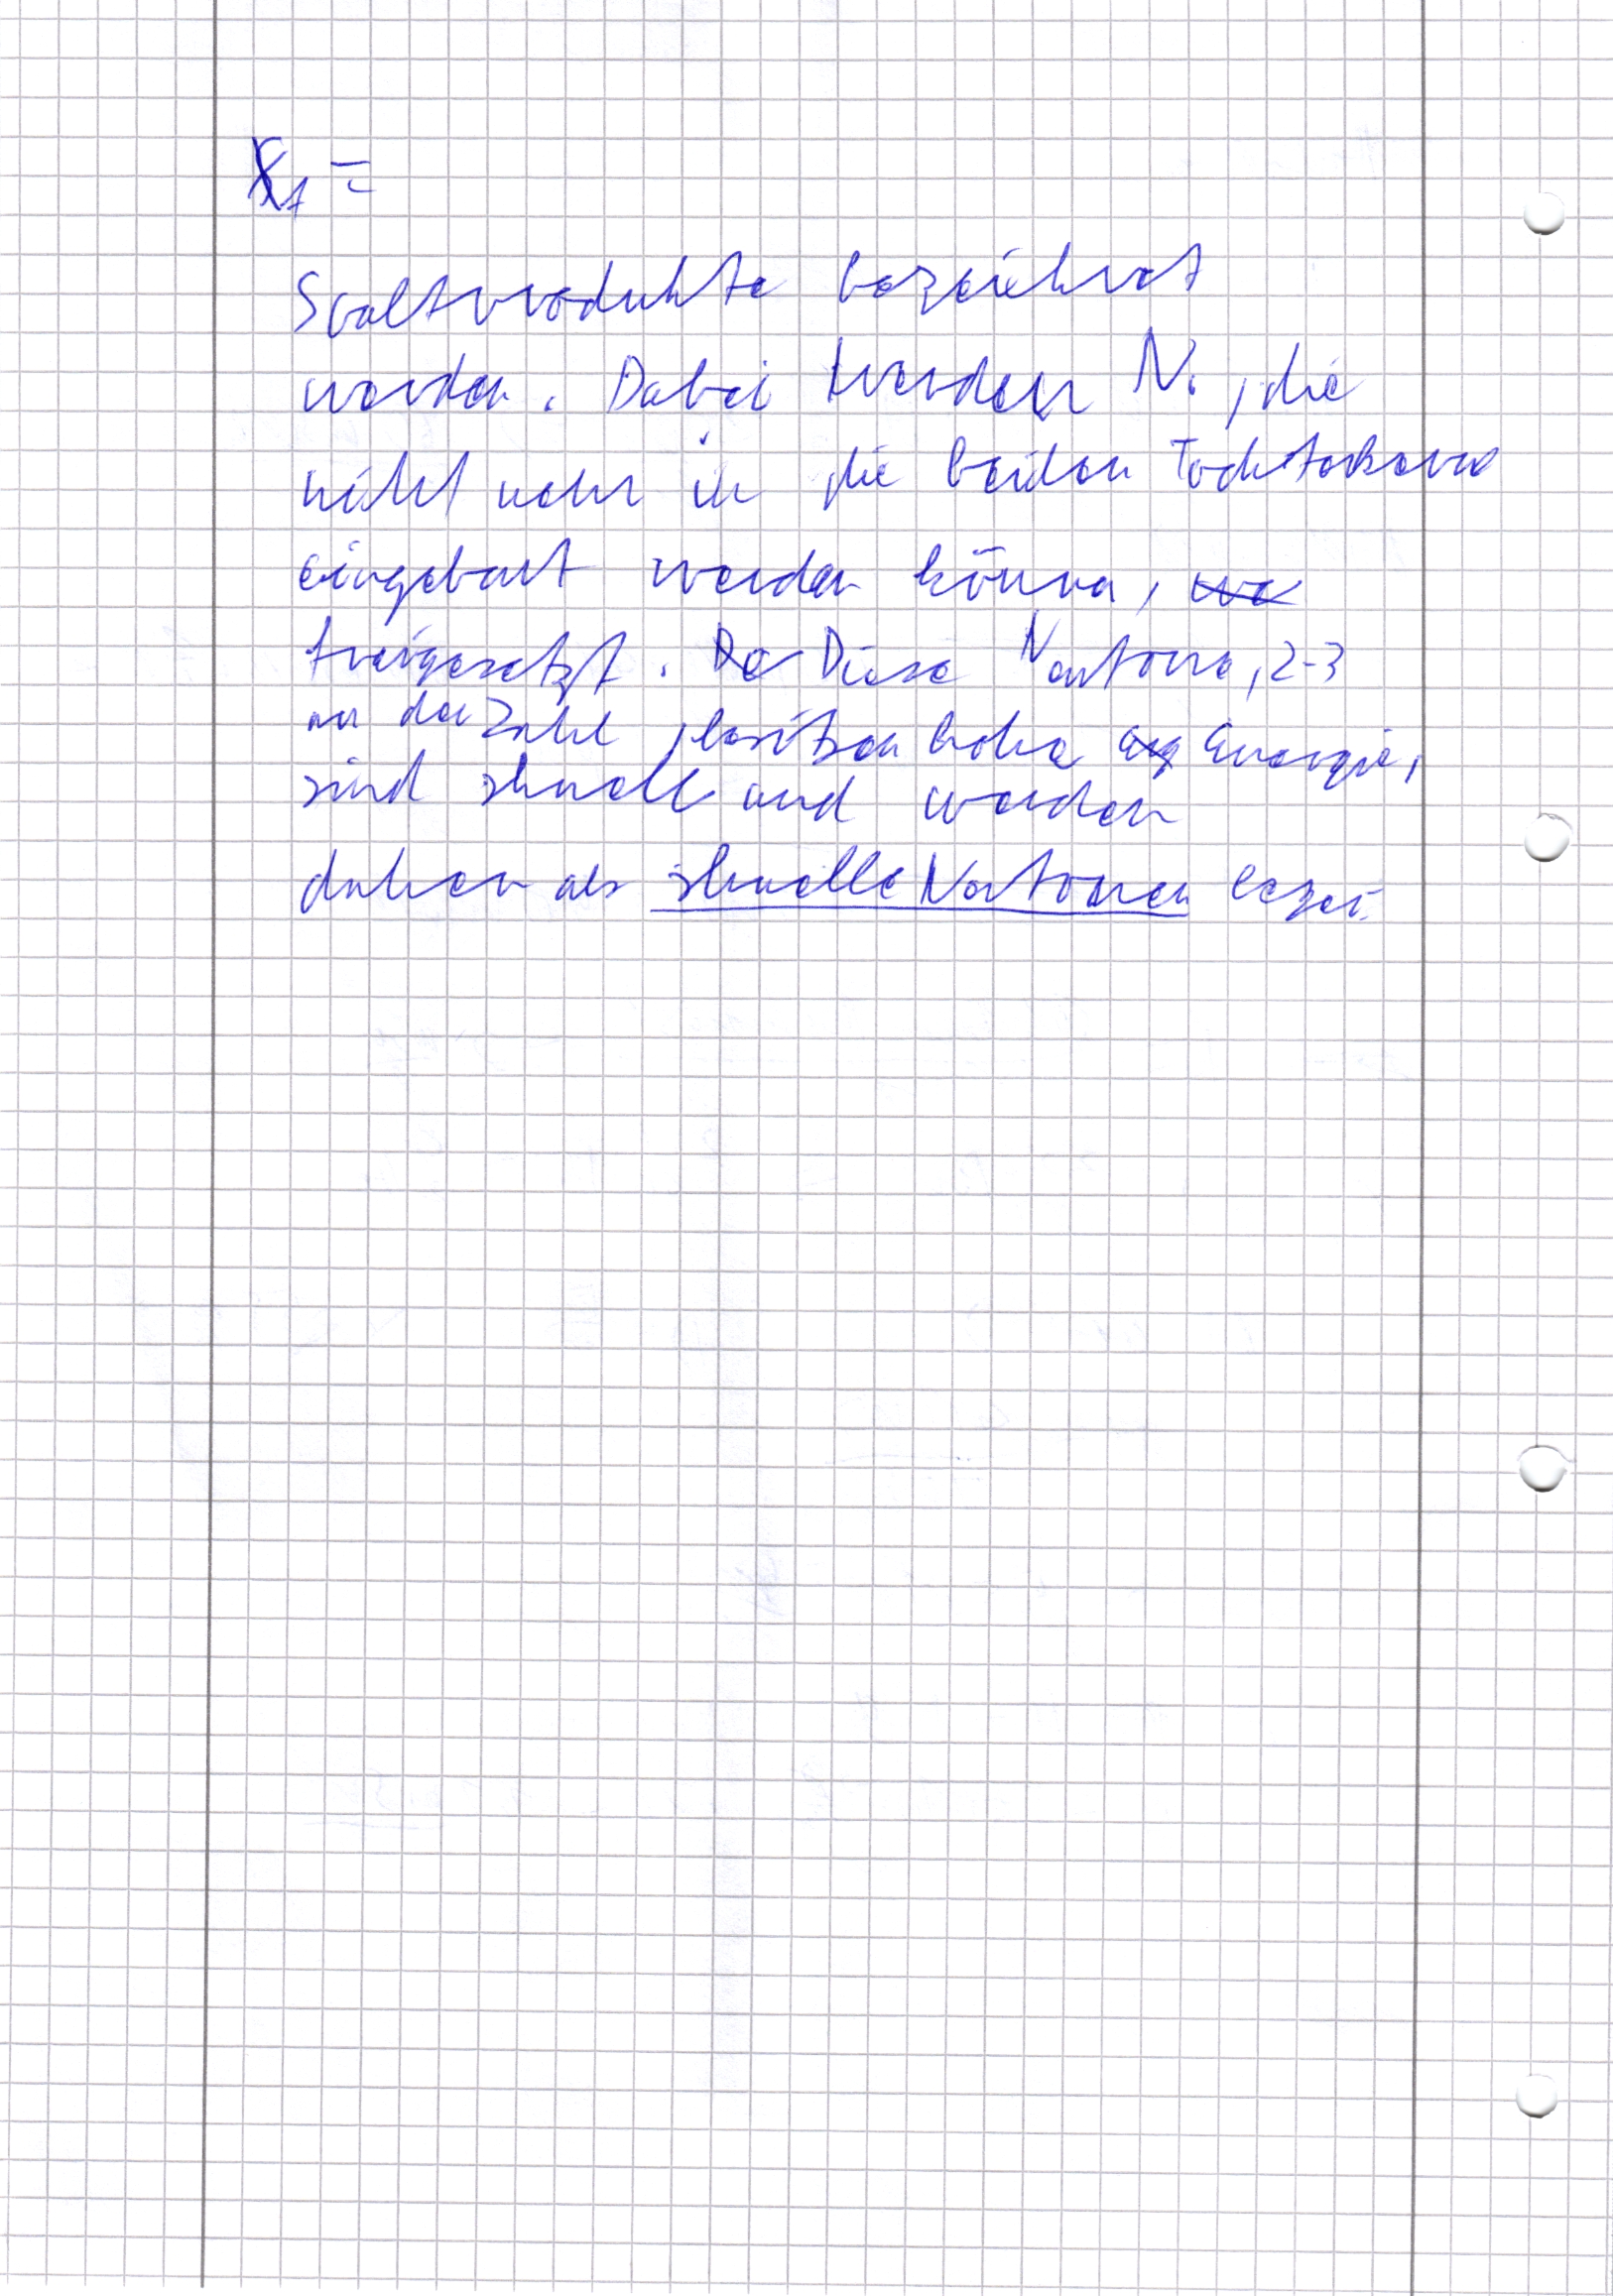 X₁ =
Spaltprodukte bezeichnet
werden. Dabei werden N., die
nicht mehr in die beiden Tochterkerne
eingebaut werden können, we
freigesetzt. De Diese Neutrone, 2-3
an der Zahl, besitzen hohe eng Energie,
sind shnell und werden
daher als shnelle Neutronen bezei.